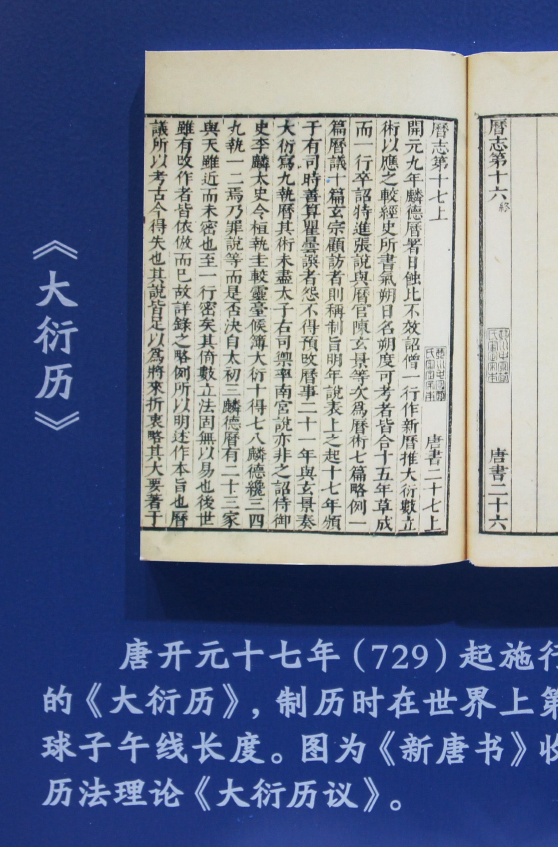 《大衍历》
曆志第十六終
唐書二十六
曆志第十七上
唐書二十七上
開元九年麟德曆署日蝕比不效詔僧一行作新曆推大衍數立
術以應之較經史所書氣朔日名朔度可考者皆合十五年草成
而一行卒詔特進張說與曆官陳玄景等次為曆術七篇略例一
篇曆議十篇玄宗顧訪者則稱制旨明年說表上之起十七年頒
于有司時善算瞿曇譔者怨不得預改曆事二十一年與玄景奏
大衍寫九執曆其術未盡太子右司禦率南宮說亦非之詔侍御
史李麟太史令桓執圭較靈臺候簿大衍十得七八麟德纔三四
九執一二焉乃罪說等而是否決自太初三麟德曆有二十三家
與天雖近而未密也至一行密矣其倚數立法固無以易也後世
雖有改作者皆依倣而已故詳錄之略例所以明述作本旨也曆
議所以考古今得失也其說皆足以為將來折衷略其大要著于
唐开元十七年（729）起施行
的《大衍历》，制历时在世界上第
球子午线长度。图为《新唐书》收
历法理论《大衍历议》。